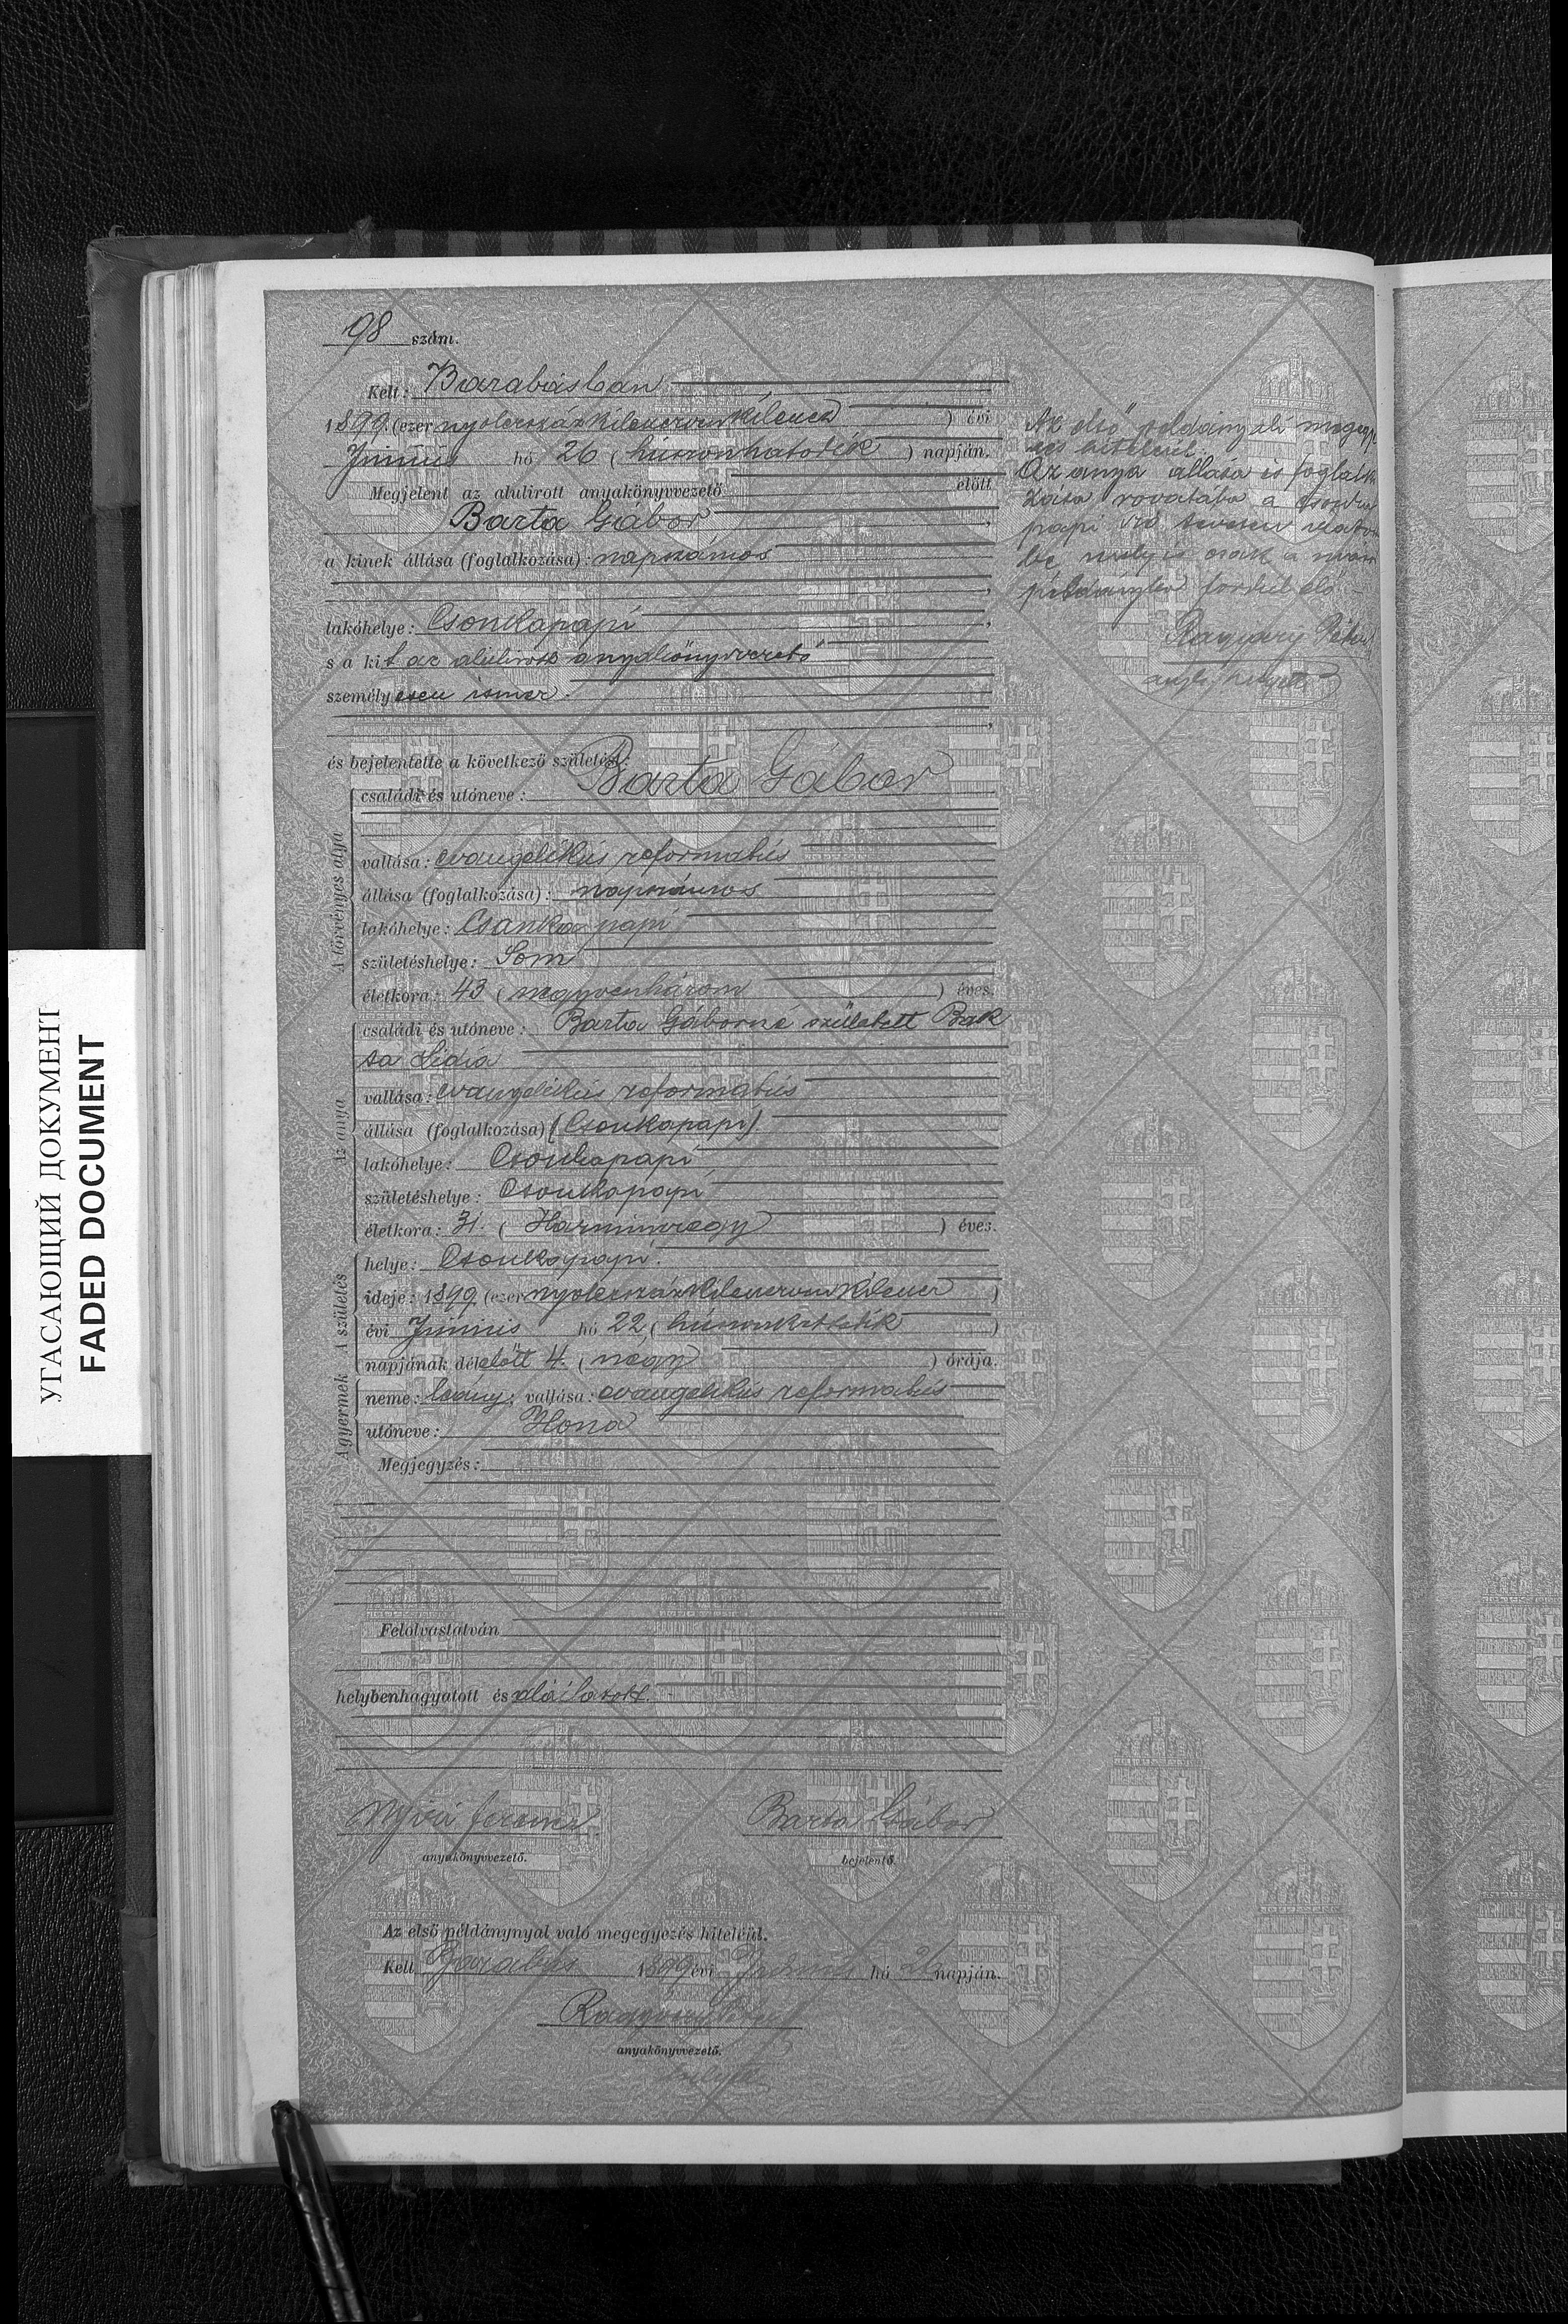 98 szám.
Kelt: Barabásban
1899. (ezer nyolczszázkilenczvenkilencz) évi
Junius hó 26 (huszonhatodik) napján.
Megjelent az alulirott anyakönyvvezető előtt
Barta Gábor,
a kinek állása (foglalkozása): napszámos
,
lakóhelye: Csonkapapi,
s a kit az alulirott anyakönyvvezető
személyesen ismer.
,
és bejelentette a következő születést:
A törvényes atya
családi és utóneve: Barta Gábor
vallása: evangelikus reformatus
állása (foglalkozása): napszámos
lakóhelye: Csonkapapi
születéshelye: Som
életkora: 43 (negyvenhárom) éves.
Az anya
családi és utóneve: Barta Gáborné született Bak
sa Lidia
vallása: evangelikus reformatus
állása (foglalkozása) (Csonkapapi)
lakóhelye: Csonkapapi
születéshelye: Csonkapapi
életkora: 31. (Harminczegy) éves.
A születés
helye: Csonkapapi.
ideje: 1899 (ezer nyolczszázkilenczvenkilencz)
évi Junius hó 22 (huszonkettedik)
napjának délelőtt 4. (négy) órája.
A gyermek
neme: leány; vallása: evangelikus reformatus
utóneve: Ilona
Megjegyzés:
Felolvastatván
helybenhagyatott és aláiratott.
Ferencz
anyakönyvvezető.
Barta Gábor
bejelentő.
Az első példánynyal való megegyezés hiteléül.
Kelt Barabás 1899 évi Junius hó 26 napján.
anyakönyvvezető.
helyettes
Az első példánynyali megegye
zés hiteléül.
Az anya állása és foglalko
zása rovatába a csonka
papi szó
be, mely is csak a
példányba fordul elő
Péter
helyettes
УГАСАЮЩИЙ ДОКУМЕНТ
FADED DOCUMENT